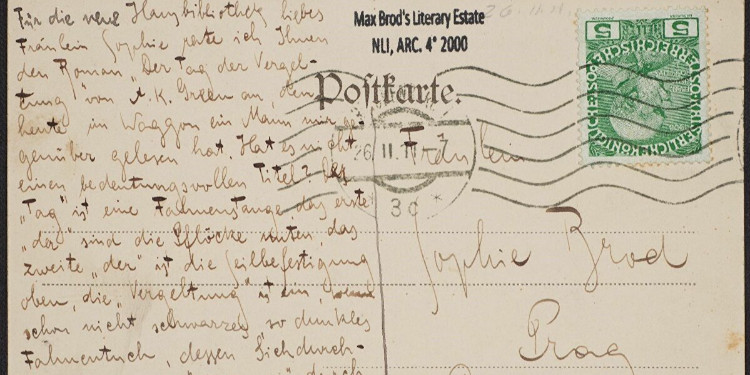 Für die neue Hausbibliothek liebes
Fräulein Sophie rate ich Ihnen
den Roman „Der Tag der Vergel-
tung" von A. K. Green an, den
heute im Waggon ein Mann mir ge-
genüber gelesen hat. Hat es nicht
einen bedeutungsvollen Titel? Der
„Tag" ist eine Fahnenstange das erste
„der" sind die Pflöcke unten, das
zweite „der" ist die Seilbefestigung
oben, die „Vergeltung" ist ein,
schon nicht schwarzes so dunkles
Fahnentuch, dessen Sichdurch-
Max Brod's Literary Estate
NLI, ARC. 4° 2000
Postkarte.
26 II 11 - 7
3c *
5 5
Fräulein
Sophie Brod
Prag